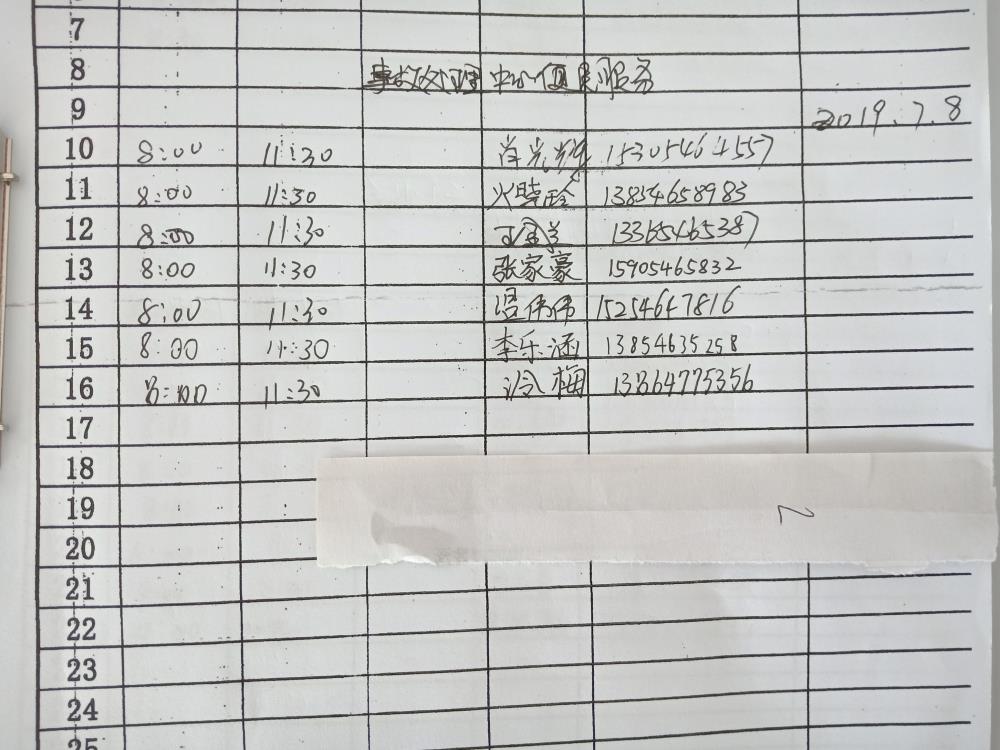 7
8 事故处理中心便民服务
9 2019.7.8
10 8:00 11:30 15305464557
11 8:00 11:30 火晓玲 13854658983
12 8:00 11:30 13365465387
13 8:00 11:30 张家豪 15905465832
14 8:00 11:30 伟伟 15254647816
15 8:00 11:30 李乐涵 13854635258
16 8:00 11:30 冷梅 13864775356
17
18
19
20
21
22
23
24
25